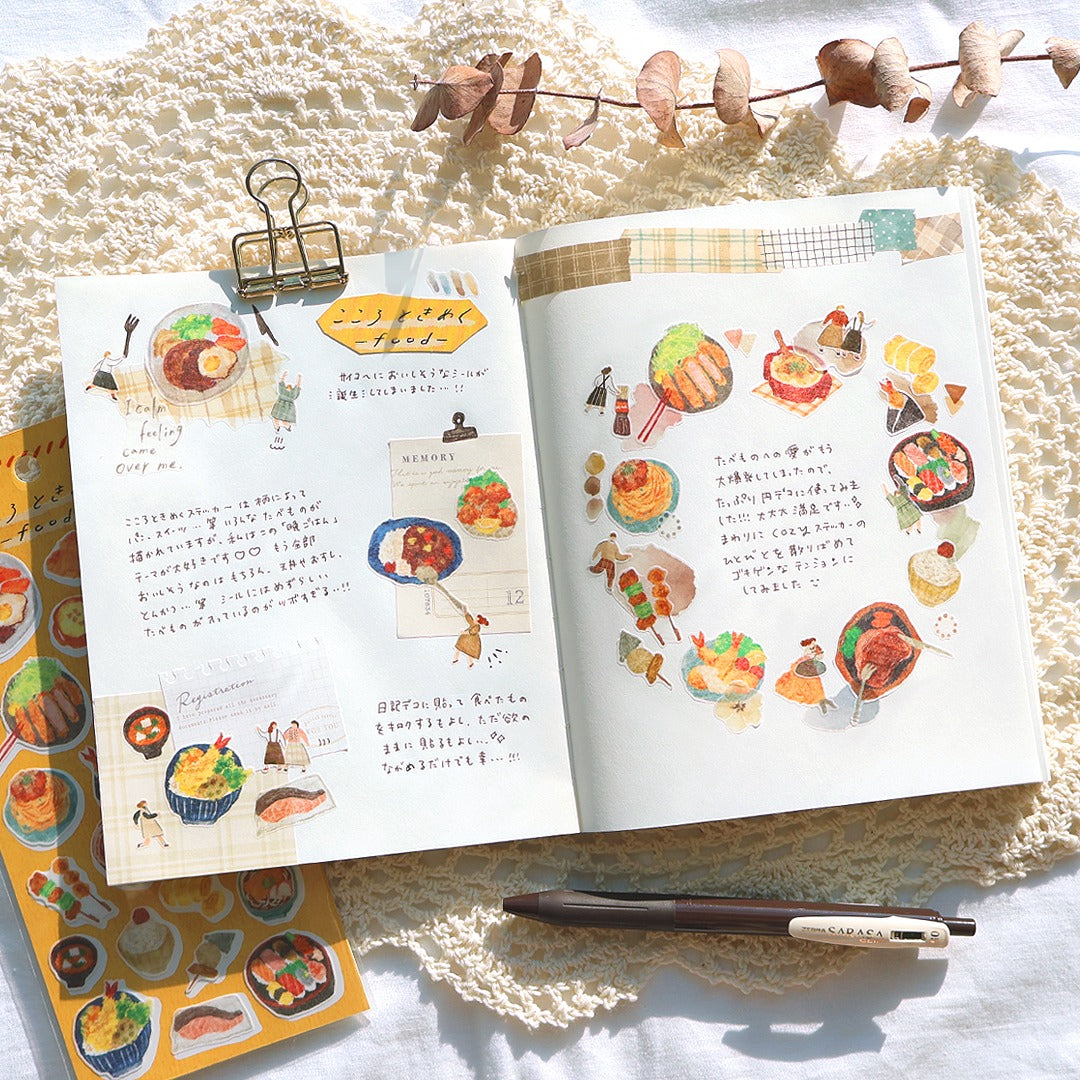 こころときめく
-food-
サイコーにおいしそうなシールが
誕生してしまいました…!!
I calm
feeling
came
over me.
MEMORY
That is a good memory for me.
12
こころときめくステッカーは柄によって
パン、スイーツ…等 いろんなたべものが
描かれていますが、私はこの「晩ごはん」
テーマが大好きです♡♡ もう全部
おいしそうなのはもちろん、天丼やおすし、
とんかつ…等 シールにはめずらしい
たべものが入っているのがツボすぎる…!!
Registration
日記デコに貼って食べたもの
をキロクするもよし、ただ欲の
ままに貼るもよし…
ながめるだけでも幸…!!!
たべものへの愛がもう
大爆発してしまったので、
たっぷり円デコに使ってみま
した!!! 大大大満足です…
まわりにCOZYステッカーの
ひとびとを散りばめて
ゴキゲンなテンションに
してみました
こころときめく
-food-
ZEBRA SARASA